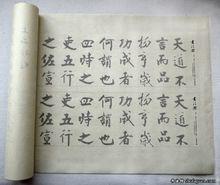 天道不
言而品
物亨歲
功成者
何謂也
四時之
吏五行
之佐宣
天道不
言而品
物亨歲
功成者
何謂也
四時之
吏五行
之佐宣